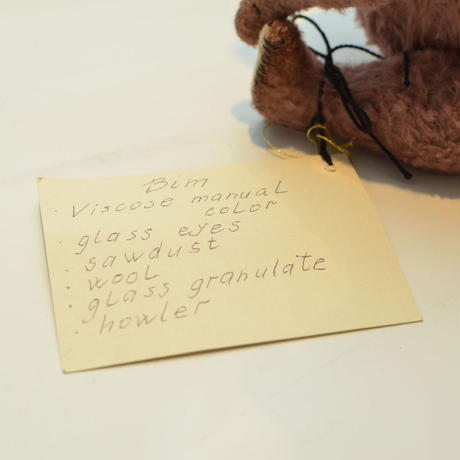 Bim
· Viscose manual
color
· glass eyes
· sawdust
· wool
· glass granulate
· howler